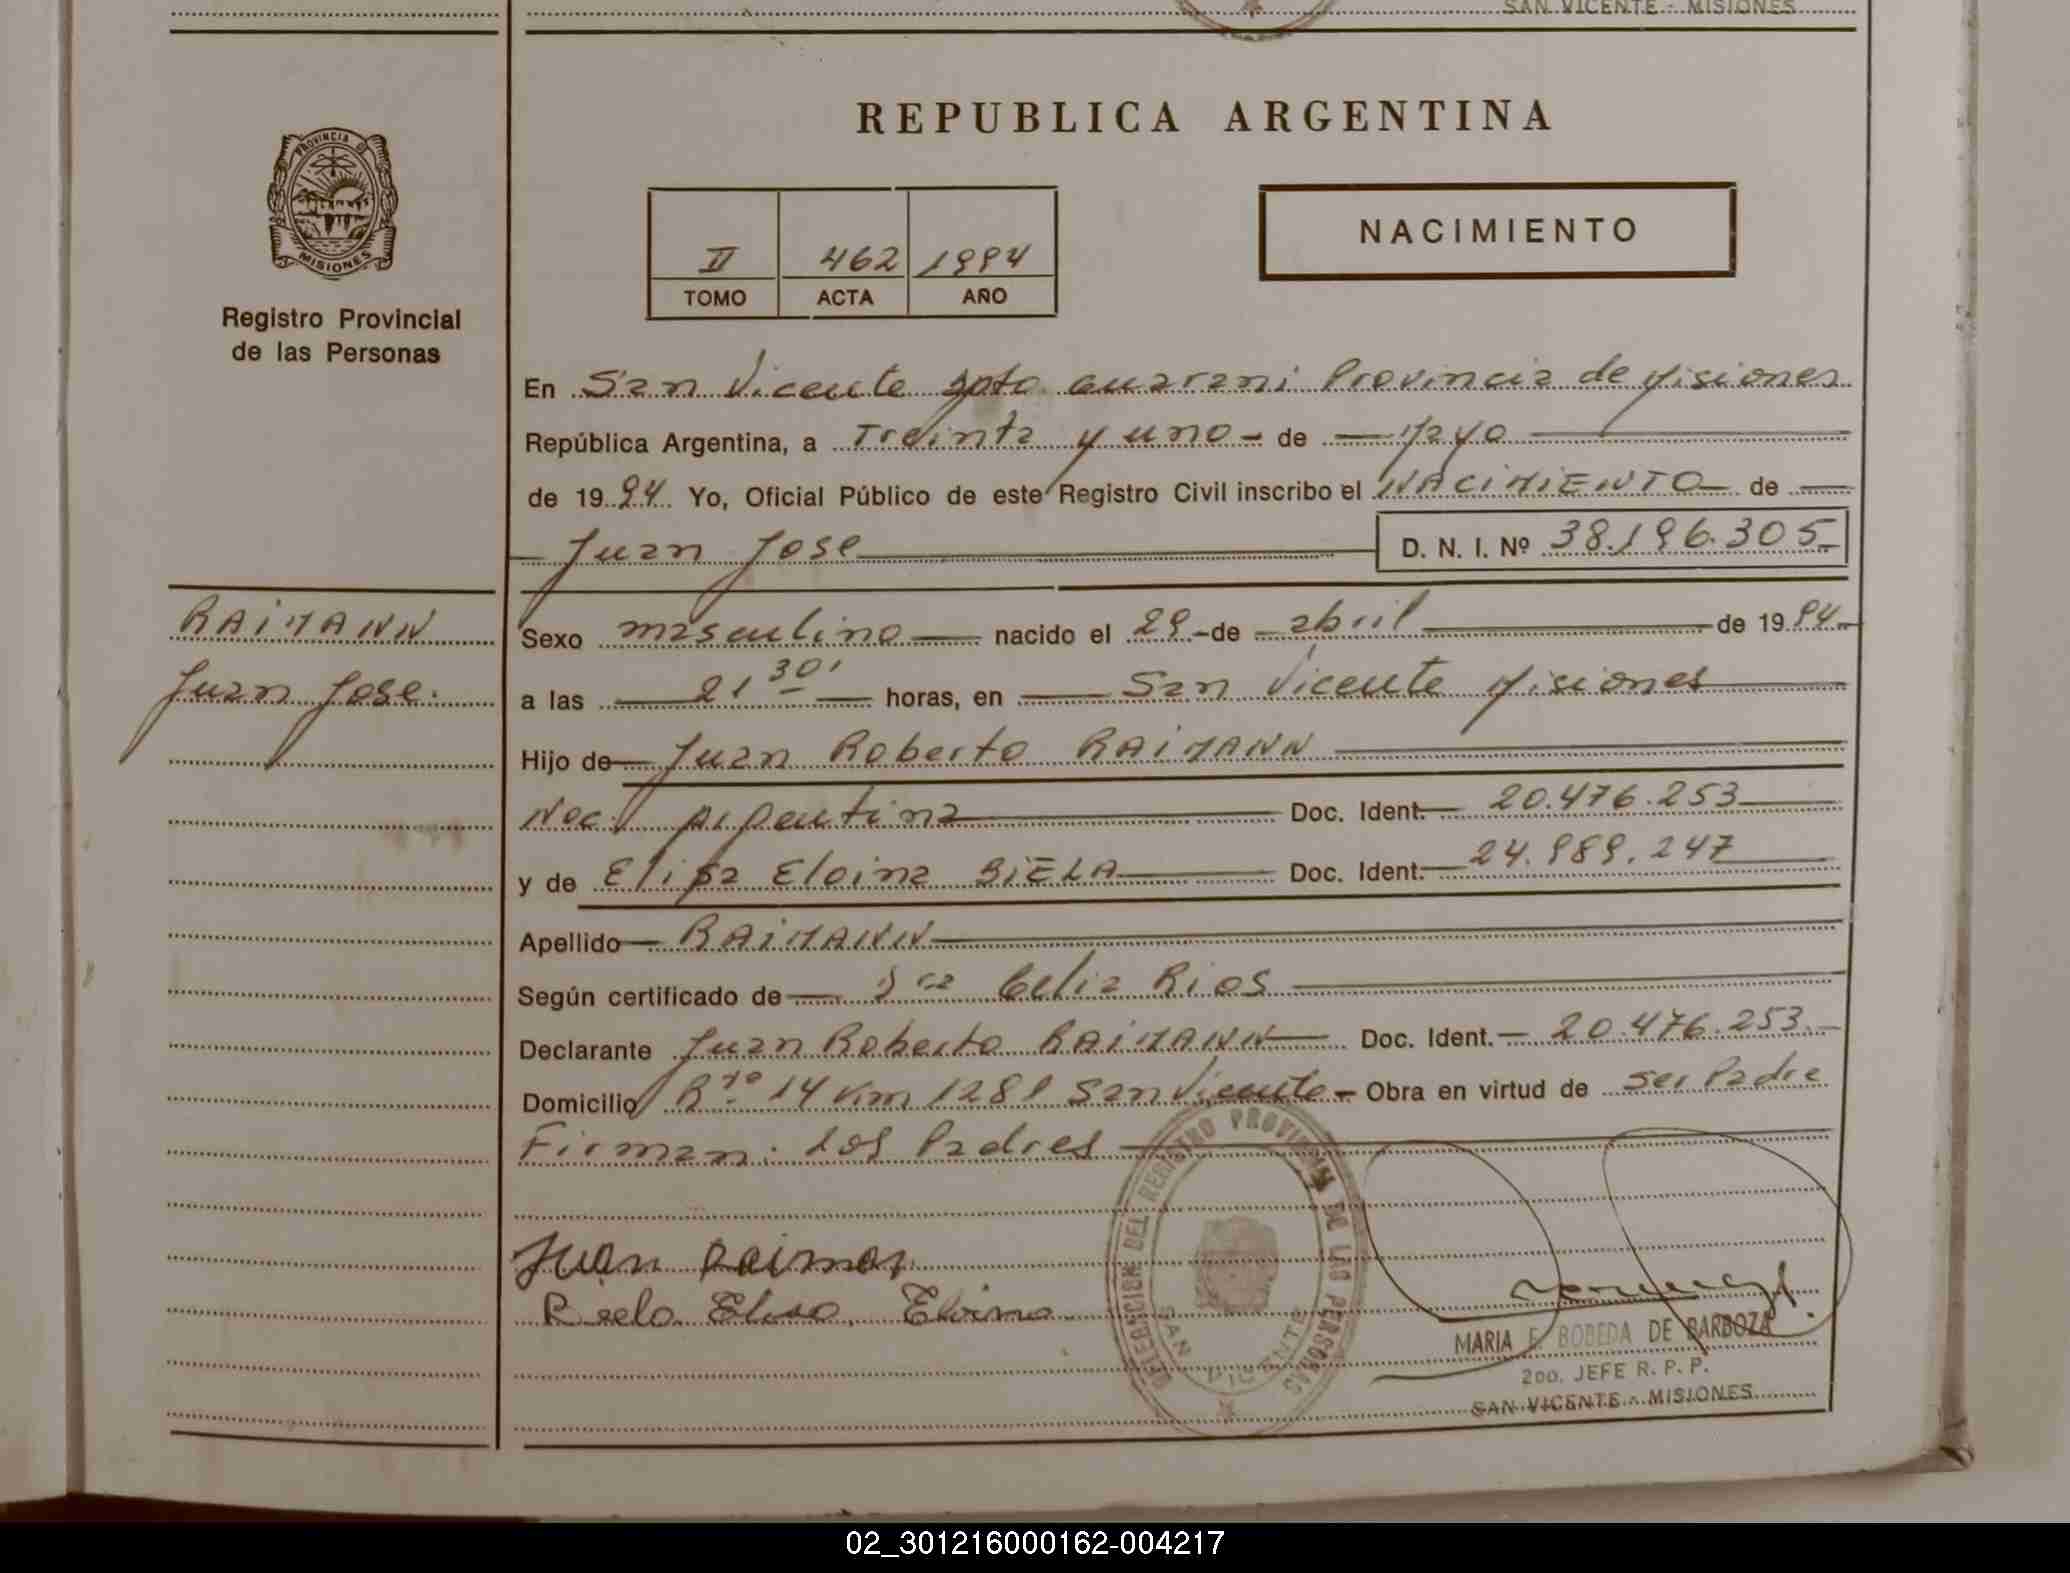 SAN VICENTE - MISIONES
REPUBLICA ARGENTINA
PROVINCIA DE
MISIONES
Registro Provincial
de las Personas
NACIMIENTO
II 462 1994
TOMO ACTA AÑO
En San Vicente Dpto Guarani Provincia de Misiones
República Argentina, a Treinta y uno - de Mayo
de 1994 Yo, Oficial Público de este Registro Civil inscribo el NACIMIENTO de
Juan Jose D. N. I. Nº 38.196.305
RAIMANN
Juan Jose.
Sexo masculino nacido el 29 - de abril de 1994
a las 21 30' horas, en San Vicente Misiones
Hijo de Juan Roberto RAIMANN
Nac. Argentina Doc. Ident. 20.476.253
y de Elisa Eloina BIELA Doc. Ident. 24.989.247
Apellido RAIMANN
Según certificado de Dra Celia Rios
Declarante Juan Roberto RAIMANN Doc. Ident. 20.476.253
Domicilio Rta 14 Km 1281 San Vicente - Obra en virtud de ser Padre
Firman: Los Padres
Juan Raiman
Elisa Eloina
DELEGACION DEL REGISTRO PROVINCIAL DE LAS PERSONAS
SAN VICENTE
MARIA E. BOBEDA DE BARBOZA
2DO. JEFE R. P. P.
SAN VICENTE - MISIONES
02_301216000162-004217